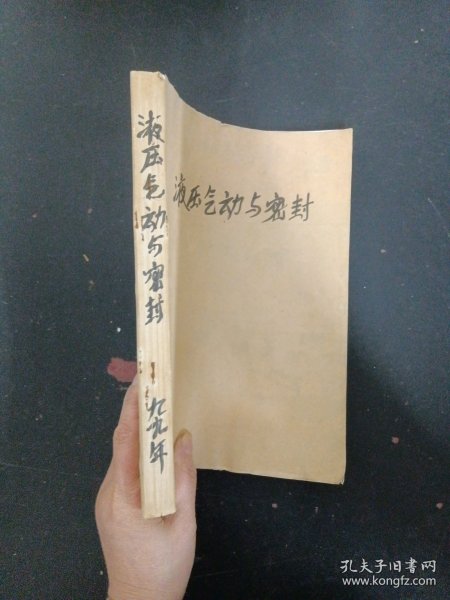 液压气动与密封
九九年
液压气动与密封
孔夫子旧书网
www.kongfz.com